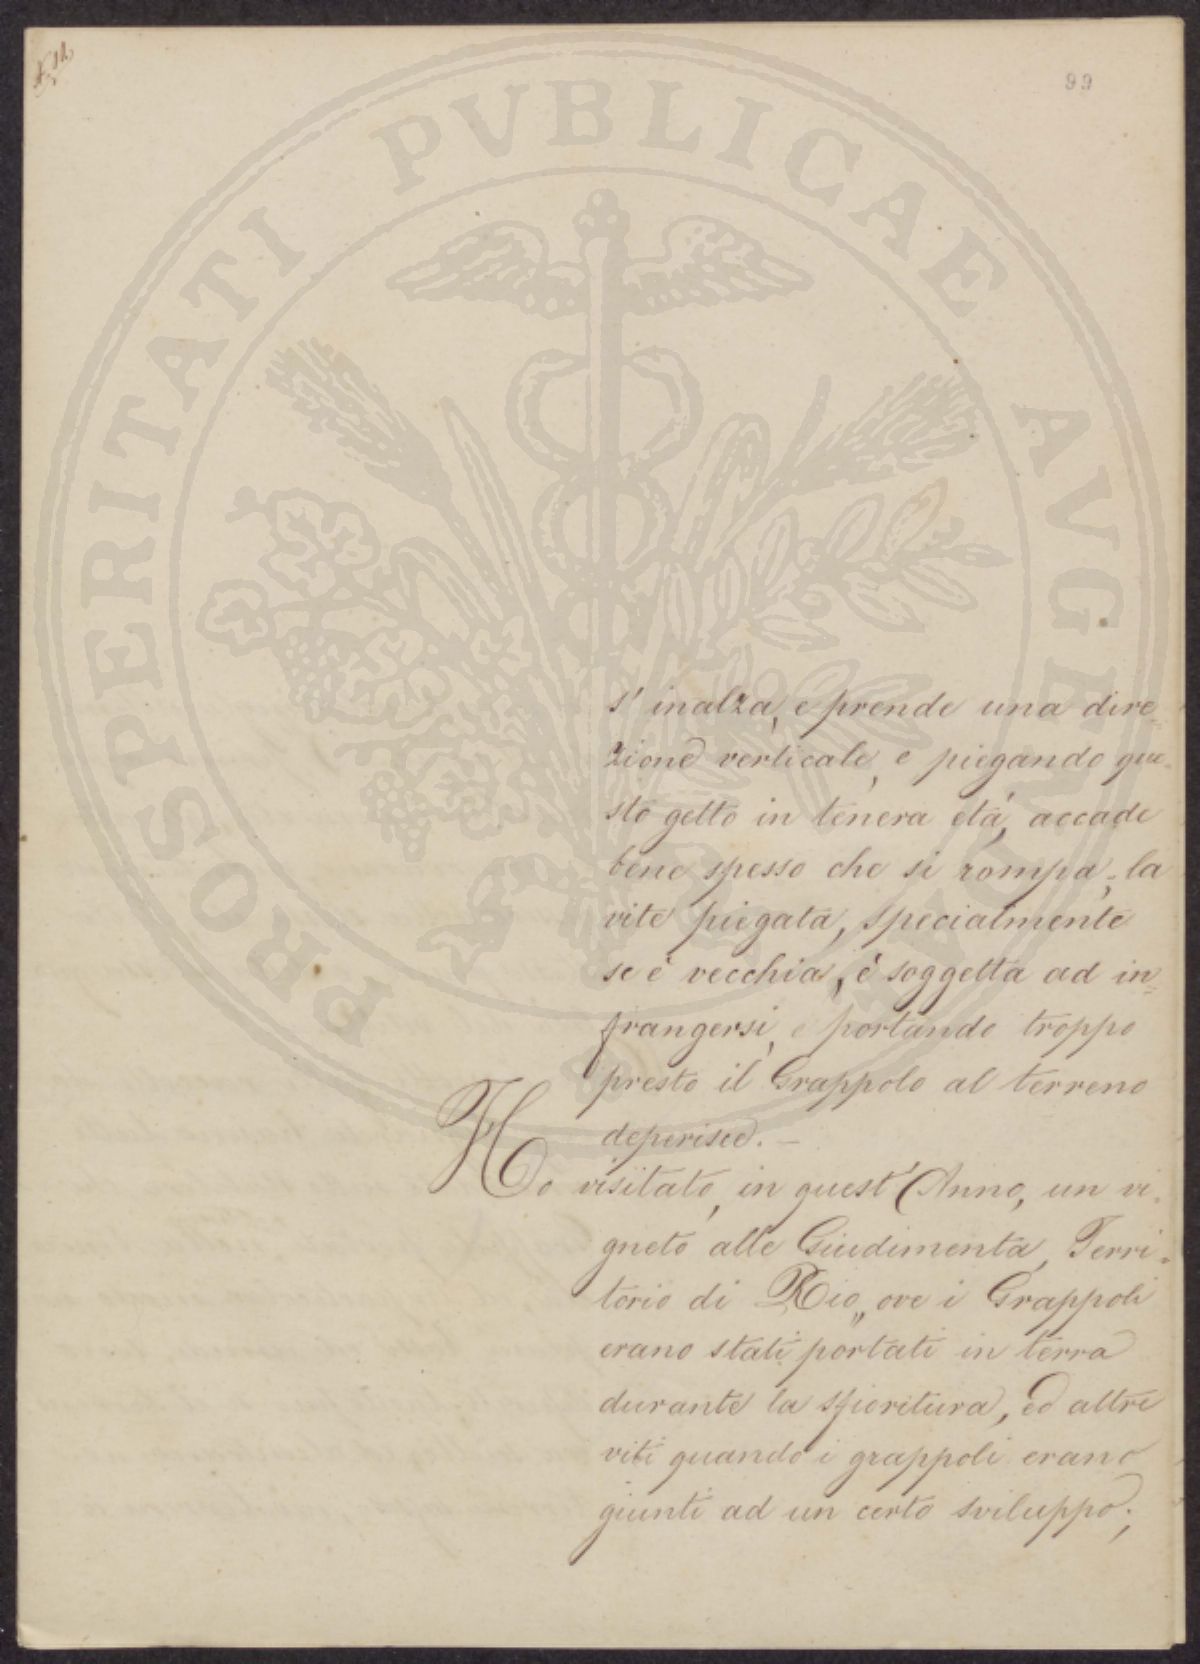 99
PROSPERITATI PVBLICAE AVGENDAE
s' inalza, e prende una dire=
zione verticale, e piegando que=
sto getto in tenera età, accade
bene spesso che si rompa; la
vite piegata, specialmente
se è vecchia, è soggetta ad in=
frangersi, e portando troppo
presto il Grappolo al terreno
deperisce. —
Ho visitato, in quest' Anno, un vi=
gneto alle Giudimenta, Terri=
torio di Rio,, ove i Grappoli
erano stati portati in terra
durante la sfioritura, ed altre
viti quando i grappoli erano
giunti ad un certo sviluppo;